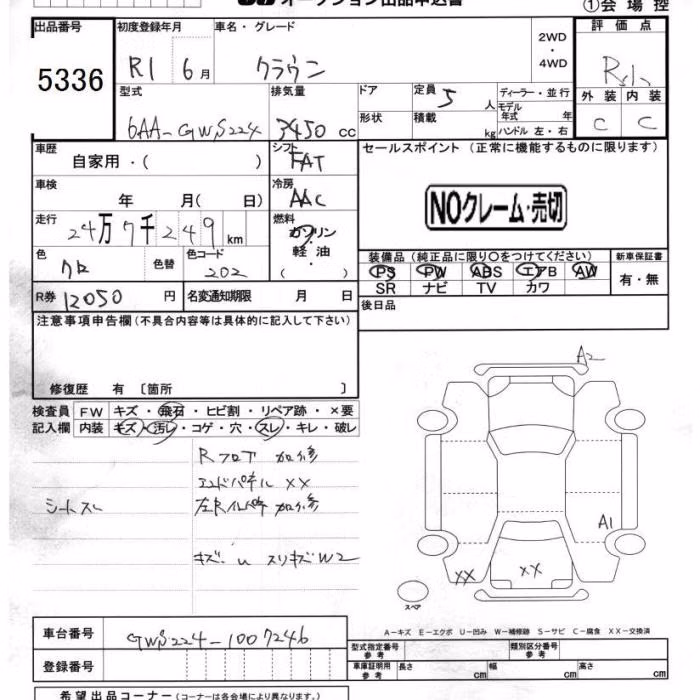 オークション出品申込書
①会場控
出品番号 初度登録年月 車名・グレード 評価点
5336 R1 6月 クラウン 2WD・4WD
型式 排気量 ドア 定員 5人 ディーラー・並行 外装 内装
6AA-GWS224 3450cc 形状 積載 kg モデル年式 年 ハンドル 左・右 C C
車歴 自家用・( ) シフト FAT セールスポイント (正常に機能するものに限ります)
車検 年 月(日) 冷房 AAC
NOクレーム・売切
走行 24万7千249km 燃料 ガソリン・軽油・( )
色 クロ 色替 色コード 202 装備品(純正品に限り○をつけてください) 新車保証書
PS PW ABS エアB AW 有・無
SR ナビ TV カワ
R券 12050円 名変通知期限 月 日 後日品
注意事項申告欄(不具合内容等は具体的に記入して下さい)
修復歴 有〔箇所 〕
検査員 FW キズ・飛石・ヒビ割・リペア跡・×要
記入欄 内装 キズ・汚レ・コゲ・穴・スレ・キレ・破レ
Rフロア 加修
エンドパネル XX
シートスレ
キズ・U スリキズW2
A2
A1
XX
XX
スペア
A-キズ E-エクボ U-凹み W-補修跡 S-サビ C-腐食 XX-交換済
車台番号 GWS224-1007246
型式指定番号 参考 類別区分番号 参考
登録番号 車庫証明用 参考 長さ cm 幅 cm 高さ cm
希望出品コーナー (コーナーは各会場により異なります。)